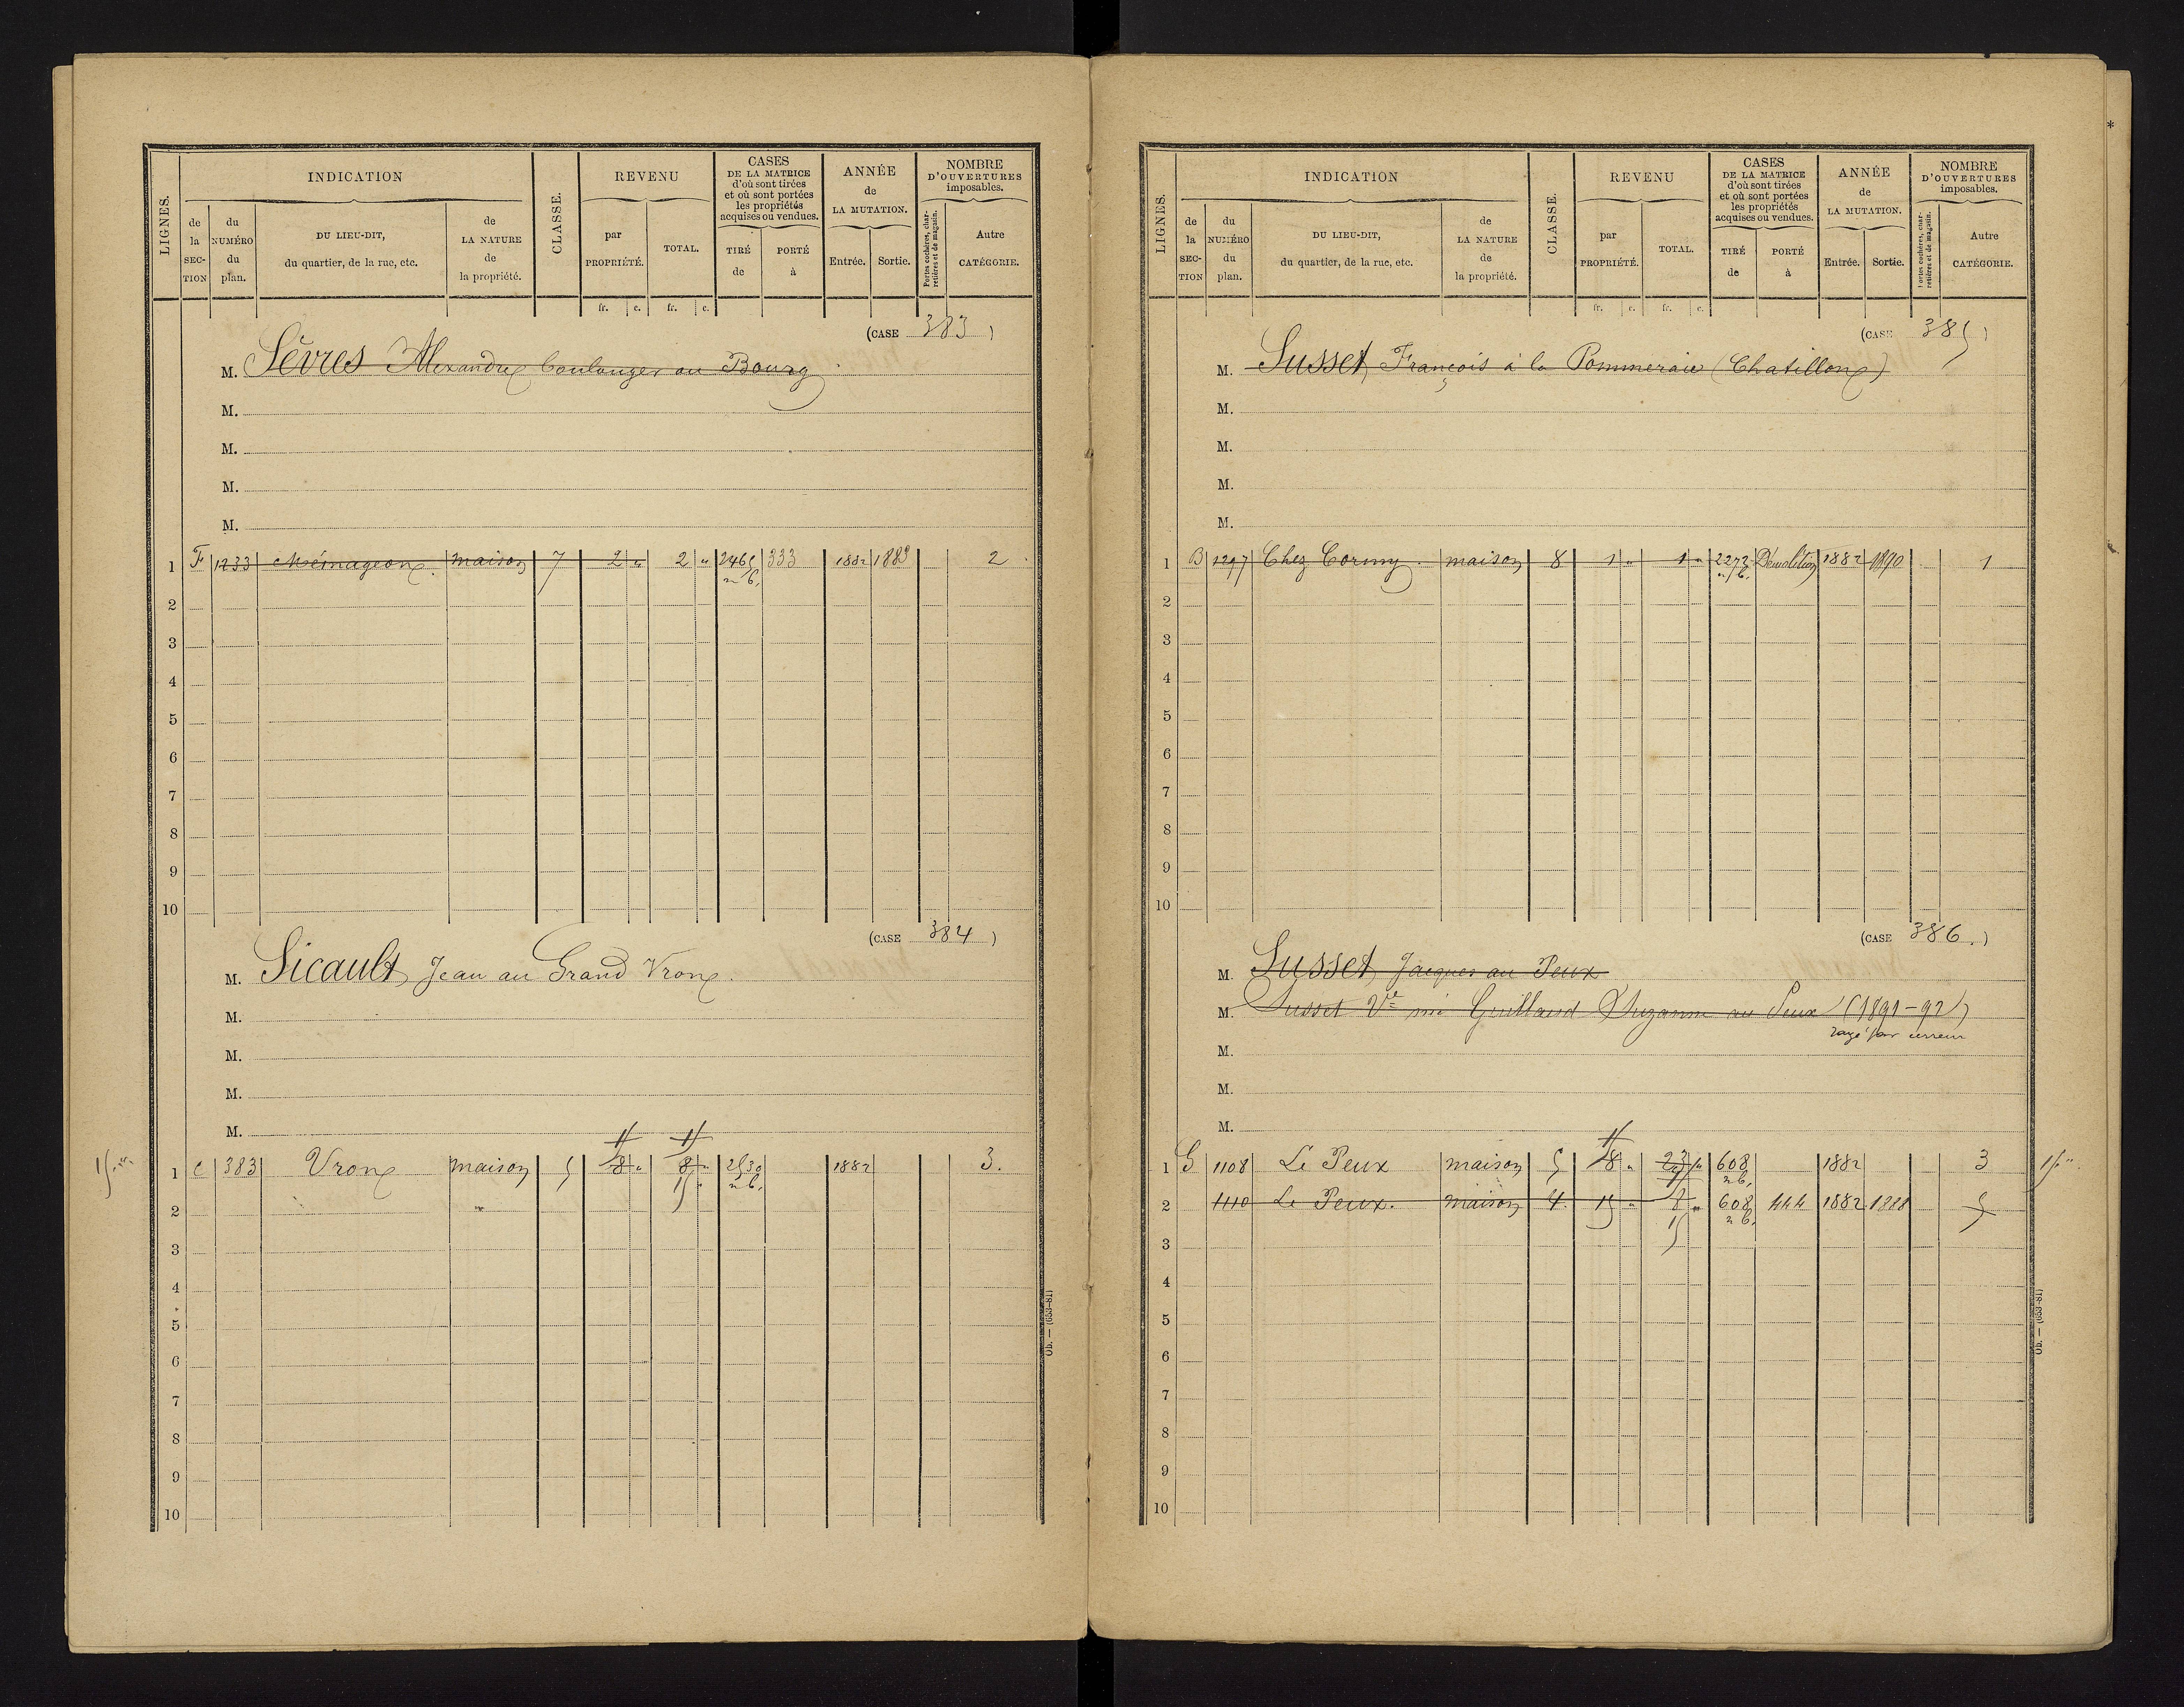 LIGNES. INDICATION CLASSE. REVENU CASES DE LA MATRICE d'où sont tirées et où sont portées les propriétés acquises ou vendues. ANNÉE de LA MUTATION. NOMBRE D'OUVERTURES imposables.
de la SECTION du NUMÉRO du plan. DU LIEU-DIT, du quartier, de la rue, etc. de LA NATURE de la propriété. par PROPRIÉTÉ. TOTAL. TIRÉ de PORTÉ à Entrée. Sortie. Portes cochères, charretières et de magasin. Autre CATÉGORIE.
fr. c. fr. c.
(CASE 383)
M. Sèvres Alexandre boulanger au Bourg
M.
M.
M.
M.
1 F 1233 Ménageon maison 7 2 " 2 " 2465 333 1882 1889 2
n b.
2
3
4
5
6
7
8
9
10
(CASE 384)
M. Sicault Jean au Grand Vron
M.
M.
M.
M.
11 11
15 " 1 C 383 Vron maison 5 8 " 8 " 2530 1882 3.
15 " n b.
2
3
4
5
6
7
8
9
10
Ob. — (653-81)
LIGNES. INDICATION CLASSE. REVENU CASES DE LA MATRICE d'où sont tirées et où sont portées les propriétés acquises ou vendues. ANNÉE de LA MUTATION. NOMBRE D'OUVERTURES imposables.
de la SECTION du NUMÉRO du plan. DU LIEU-DIT, du quartier, de la rue, etc. de LA NATURE de la propriété. par PROPRIÉTÉ. TOTAL. TIRÉ de PORTÉ à Entrée. Sortie. Portes cochères, charretières et de magasin. Autre CATÉGORIE.
fr. c. fr. c.
(CASE 385)
M. Susset François à la Pommeraie (Chatillon)
M.
M.
M.
M.
1 B 1297 Chez Cormy. maison 8 1 " 1 " 2272 Démolition 1882 1890 1
n b.
2
3
4
5
6
7
8
9
10
(CASE 386.)
M. Susset Jacques au Peux
M. Susset Ve née Guillaud Suzanne au Peux (1891-92)
rayé par erreur
M.
M.
M.
11
1 G 1108 Le Peux maison 5 8 " 23 " 608 1882 3 15 "
n b.
2 1110 Le Peux. maison 4. 15 " 8 " 608 444 1882 1888 5
15 n b.
3
4
5
6
7
8
9
10
Ob. — (653-81)